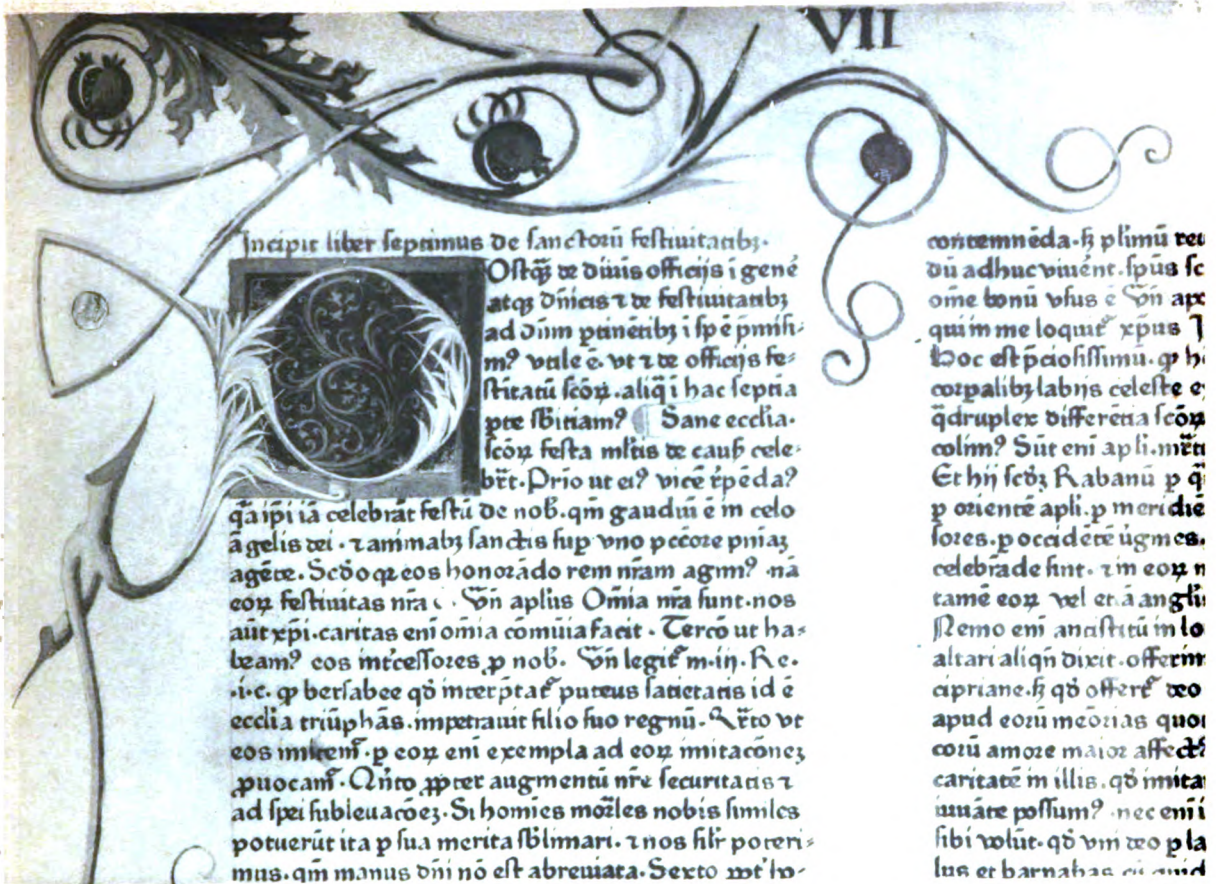 VII
Incipit liber septimus de sanctorū festiuitatibꝫ.
Ostqꝫ de diuis officijs i genē
atqꝫ dn̄icis ⁊ de festiuitatibꝫ
ad dūm ptinētibꝫ i spē p̄misi-
m? vtile ē. vt ⁊ de officijs fe-
stiītatū scōꝝ. aliq̄ i hac septīa
pte sb̄iciam? Sane ecclīa.
scōꝝ festa ml̄tis de causꝭ cele-
br̄t. Prīo ut ei? vicē r̄pēda?
q̄a ip̄i iā celebrāt festū de nob̄. qm̄ gaudiū ē in celo
āgelis dei. ⁊ animabꝫ sanctis sup vno pccōre pniaꝫ
agēte. Scd̄o qꝛ eos honorādo rem nr̄am agim? nā
eoꝝ festiuitas nr̄a Vn̄ apl̄us Om̄ia nr̄a sunt. nos
aūt xp̄i. caritas eni om̄ia cōmūia facit. Tercō ut ha-
beam? eos int̄cessores ꝓ nob̄. Vn̄ legit᷑ m. iij. Re.
.i. c. ꝙ bersabee qd̄ int̄erptat᷑ puteus satietatis id ē
ecclīa triūphās. impetrauit filio suo regnū. Qr̄to vt
eos imitem᷑. p eoꝝ eni exempla ad eoꝝ imitacōneꝫ
ꝓuocam᷑. Qn̄to ꝓpter augmentū nr̄e securitatis ⁊
ad spei subleuacōeꝫ. Si homīes mor̄les nobis similes
potuerūt ita p sua merita sb̄limari. ⁊ nos sil̄r poteri-
mus. qm̄ manus dn̄i nō est abreuiata. Sexto
contemnēda. sꝫ pl̄imū
dū adhuc viuēnt. sp̄us
om̄e bonū vsus ē Vn̄
qui in me loquit᷑ xp̄us
Hoc est p̄ciosissimū. ꝙ
corpalibꝫ labijs celeste
q̄druplex differētia scōꝝ
colim? Sūt eni apl̄i.
Et hij scd̄ꝫ Rabanū p
p oriētē apl̄i. p meridiē
sores. p occidētē ūgines.
celebrāde sint. ⁊ in eoꝝ
tamē eoꝝ vel et ā
Nemo eni anc̄istitū in
altari aliqn̄ dixit. offerim
cipriane. sꝫ qd̄ offert᷑ deo
apud eorū meōrias
corū amore maior
caritatē in illis. qd̄ imita
iuuāre possum? nec eni
sibi volūt. qd̄ vni deo
lus et barnabas